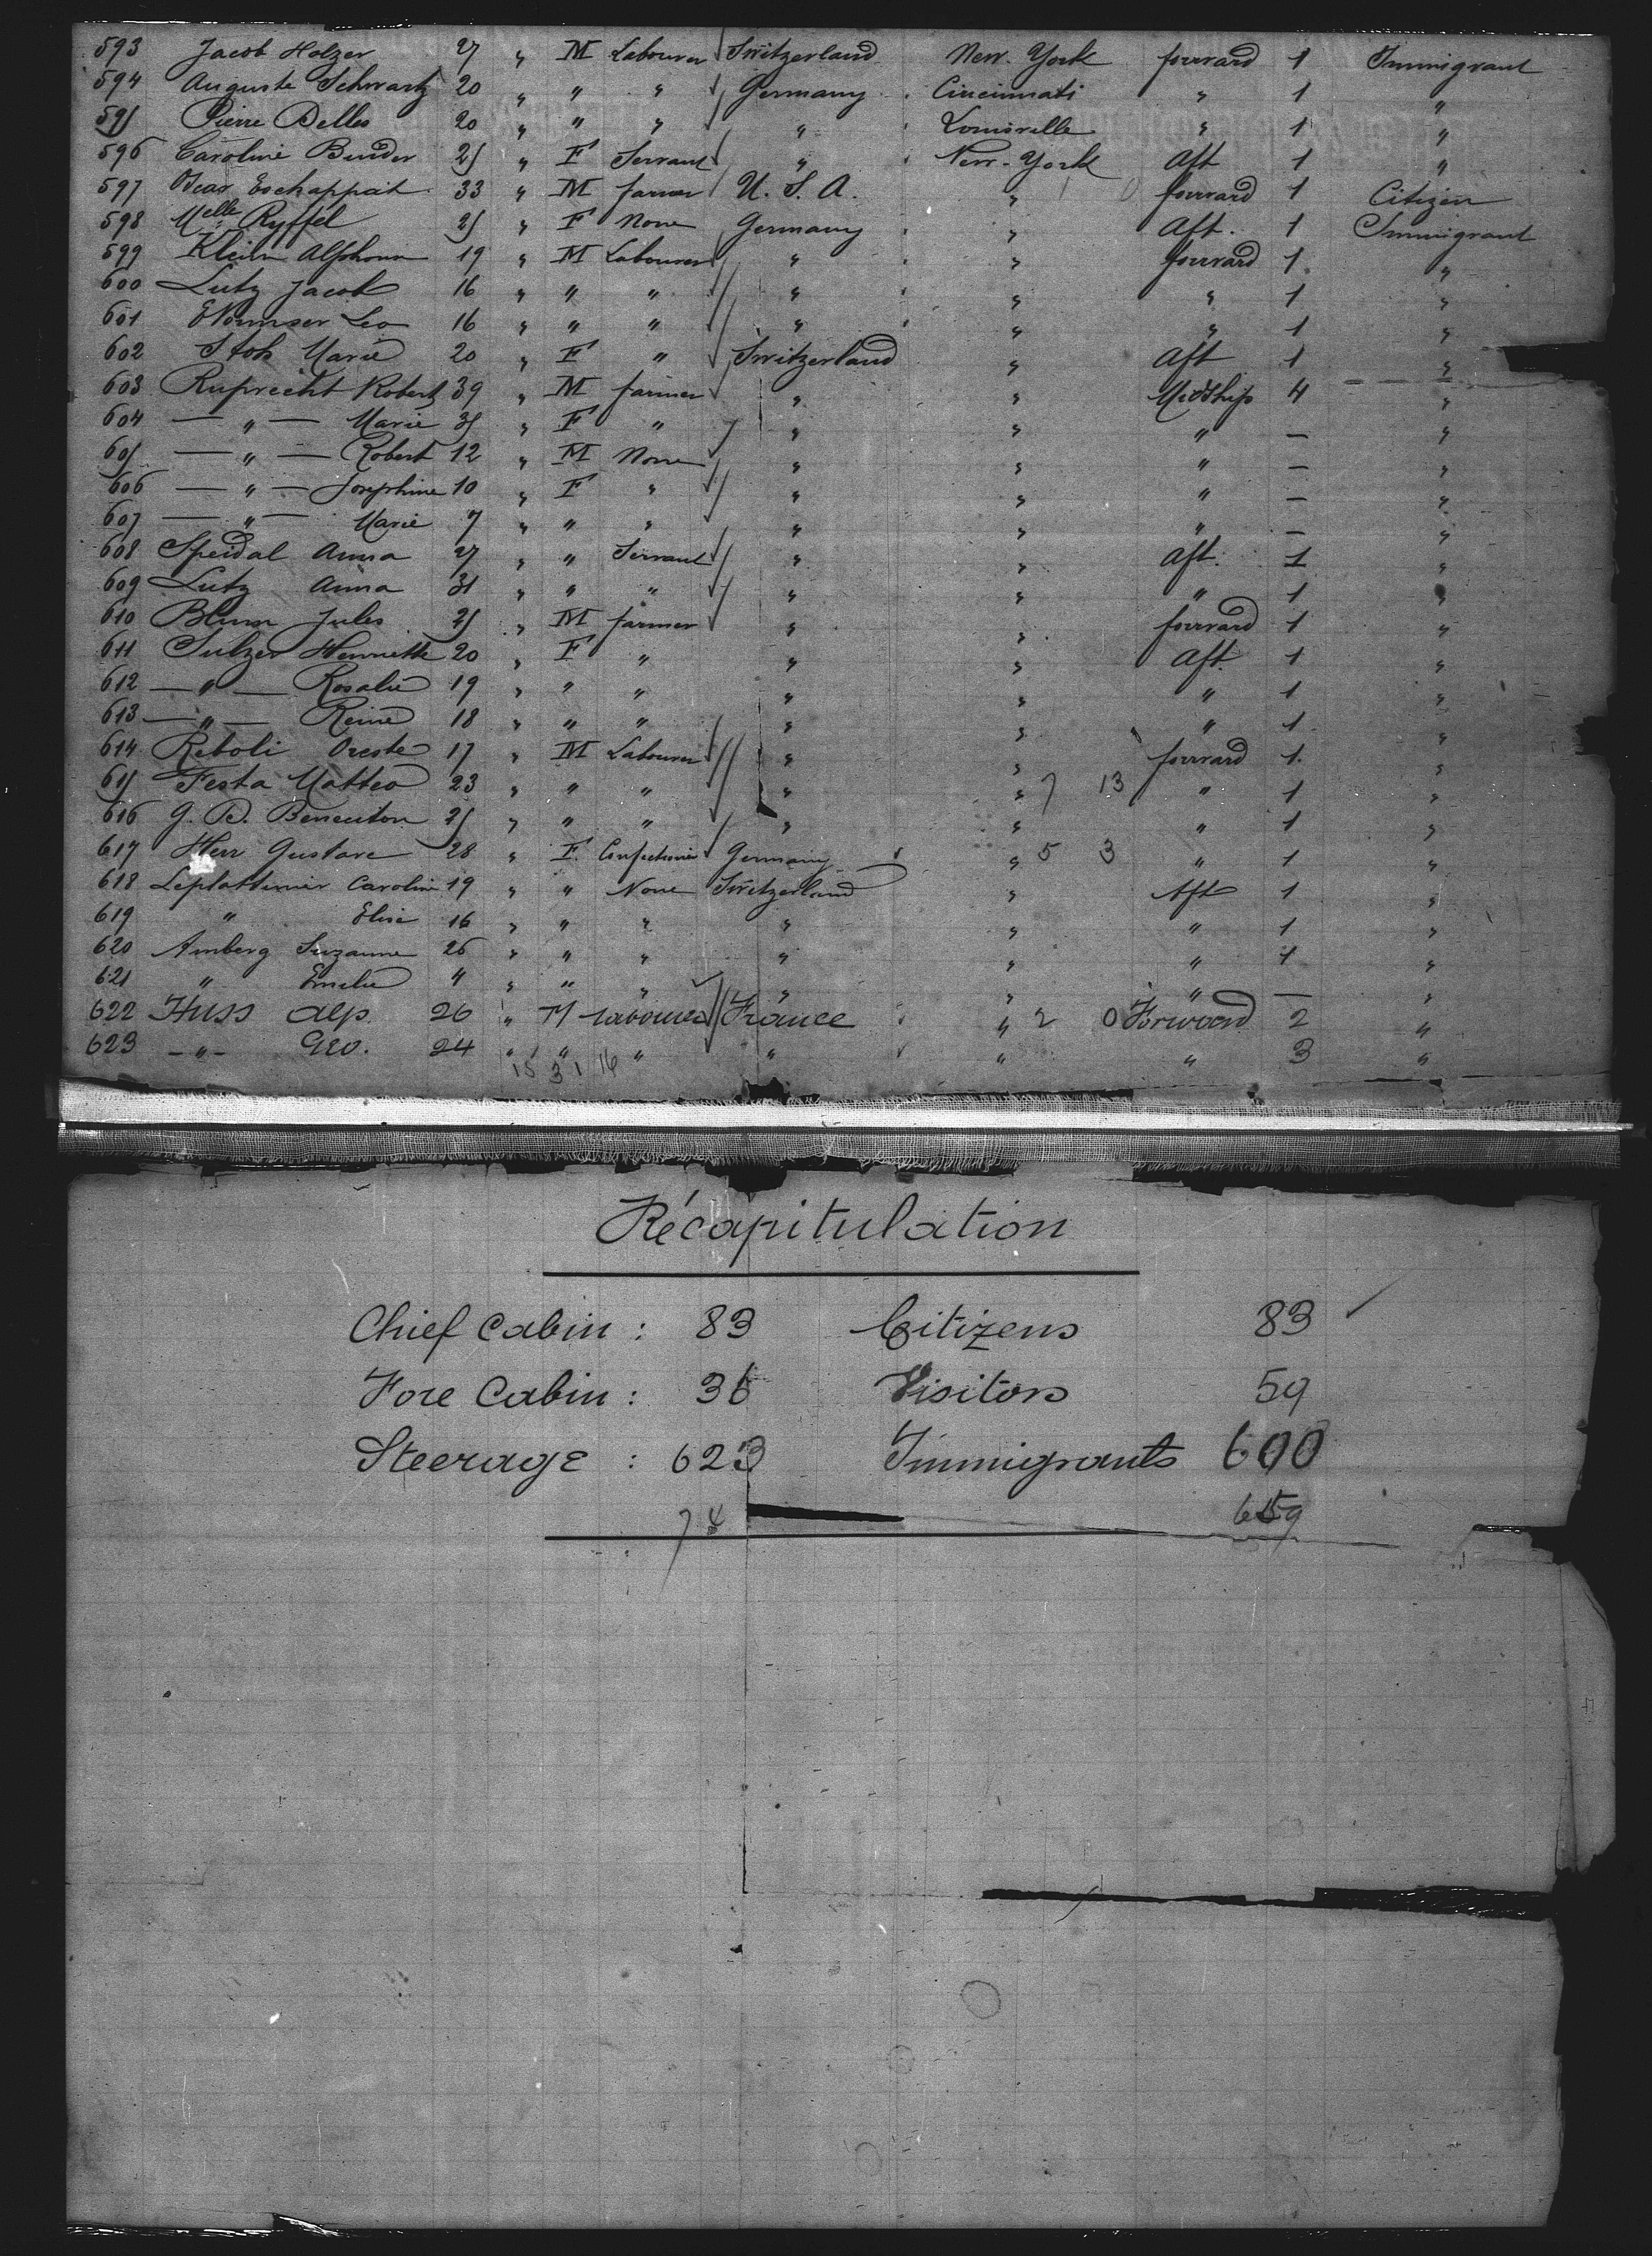 593 Jacob Holzer 27 " M Labourer Switzerland New-York forward 1 Immigrant
594 Auguste Schwartz 20 " " " Germany Cincinnati " 1 "
595 Pierre Delles 20 " " " " Louisville " 1 "
596 Caroline Binder 25 " F Servant " New-York Aft 1 "
597 Eschappait 33 " M farmer U.S.A. " forward 1 Citizen
598 Melle Ryffel 25 " F None Germany " Aft. 1 Immigrant
599 Klein Alphonse 19 " M Labourer " " forward 1 "
600 Lutz Jacob 16 " " " " " " 1 "
601 Leo 16 " " " " " " 1 "
602 Stoh Marie 20 " F " Switzerland " Aft 1 "
603 Ruprecht Robert 39 " M farmer " " Midship 4 "
604 — " — Marie 35 " F " " " " — "
605 — " — Robert 12 " M None " " " — "
606 — " — Josephine 10 " F " " " " — "
607 — " — Marie 7 " " " " " " — "
608 Speidal Anna 27 " " Servant " " Aft. 1 "
609 Lutz Anna 31 " " " " " " 1 "
610 Blum Jules 25 " M farmer " " forward 1 "
611 Sulzer Henriette 20 " F " " " Aft. 1 "
612 — " — Rosalie 19 " " " " " " 1 "
613 — " — Reine 18 " " " " " " 1 "
614 Reboli Oreste 17 " M Labourer " " forward 1. "
615 Festa Matteo 23 " " " " " 7 13 " 1 "
616 G. B. Beneciton 25 " " " " " " 1 "
617 Herr Gustave 28 " F. Confectioner Germany " 5 3 " 1 "
618 Leplattenier Caroline 19 " " None Switzerland " Aft 1 "
619 " Elise 16 " " " " " " 1 "
620 Amberg Suzanne 26 " " " " " " 1 "
621 " Emelie 4 " " " " " " — "
622 Huss Alp. 26 " M Labourer France " 2 0 Forward 2 "
623 -"- Geo. 24 " " " " " " 3 "
15 3 1 16
Récapitulation
Chief Cabin : 83 Citizens 83
Fore Cabin : 36 Visitors 59
Steerage : 623 Immigrants 600
74 659